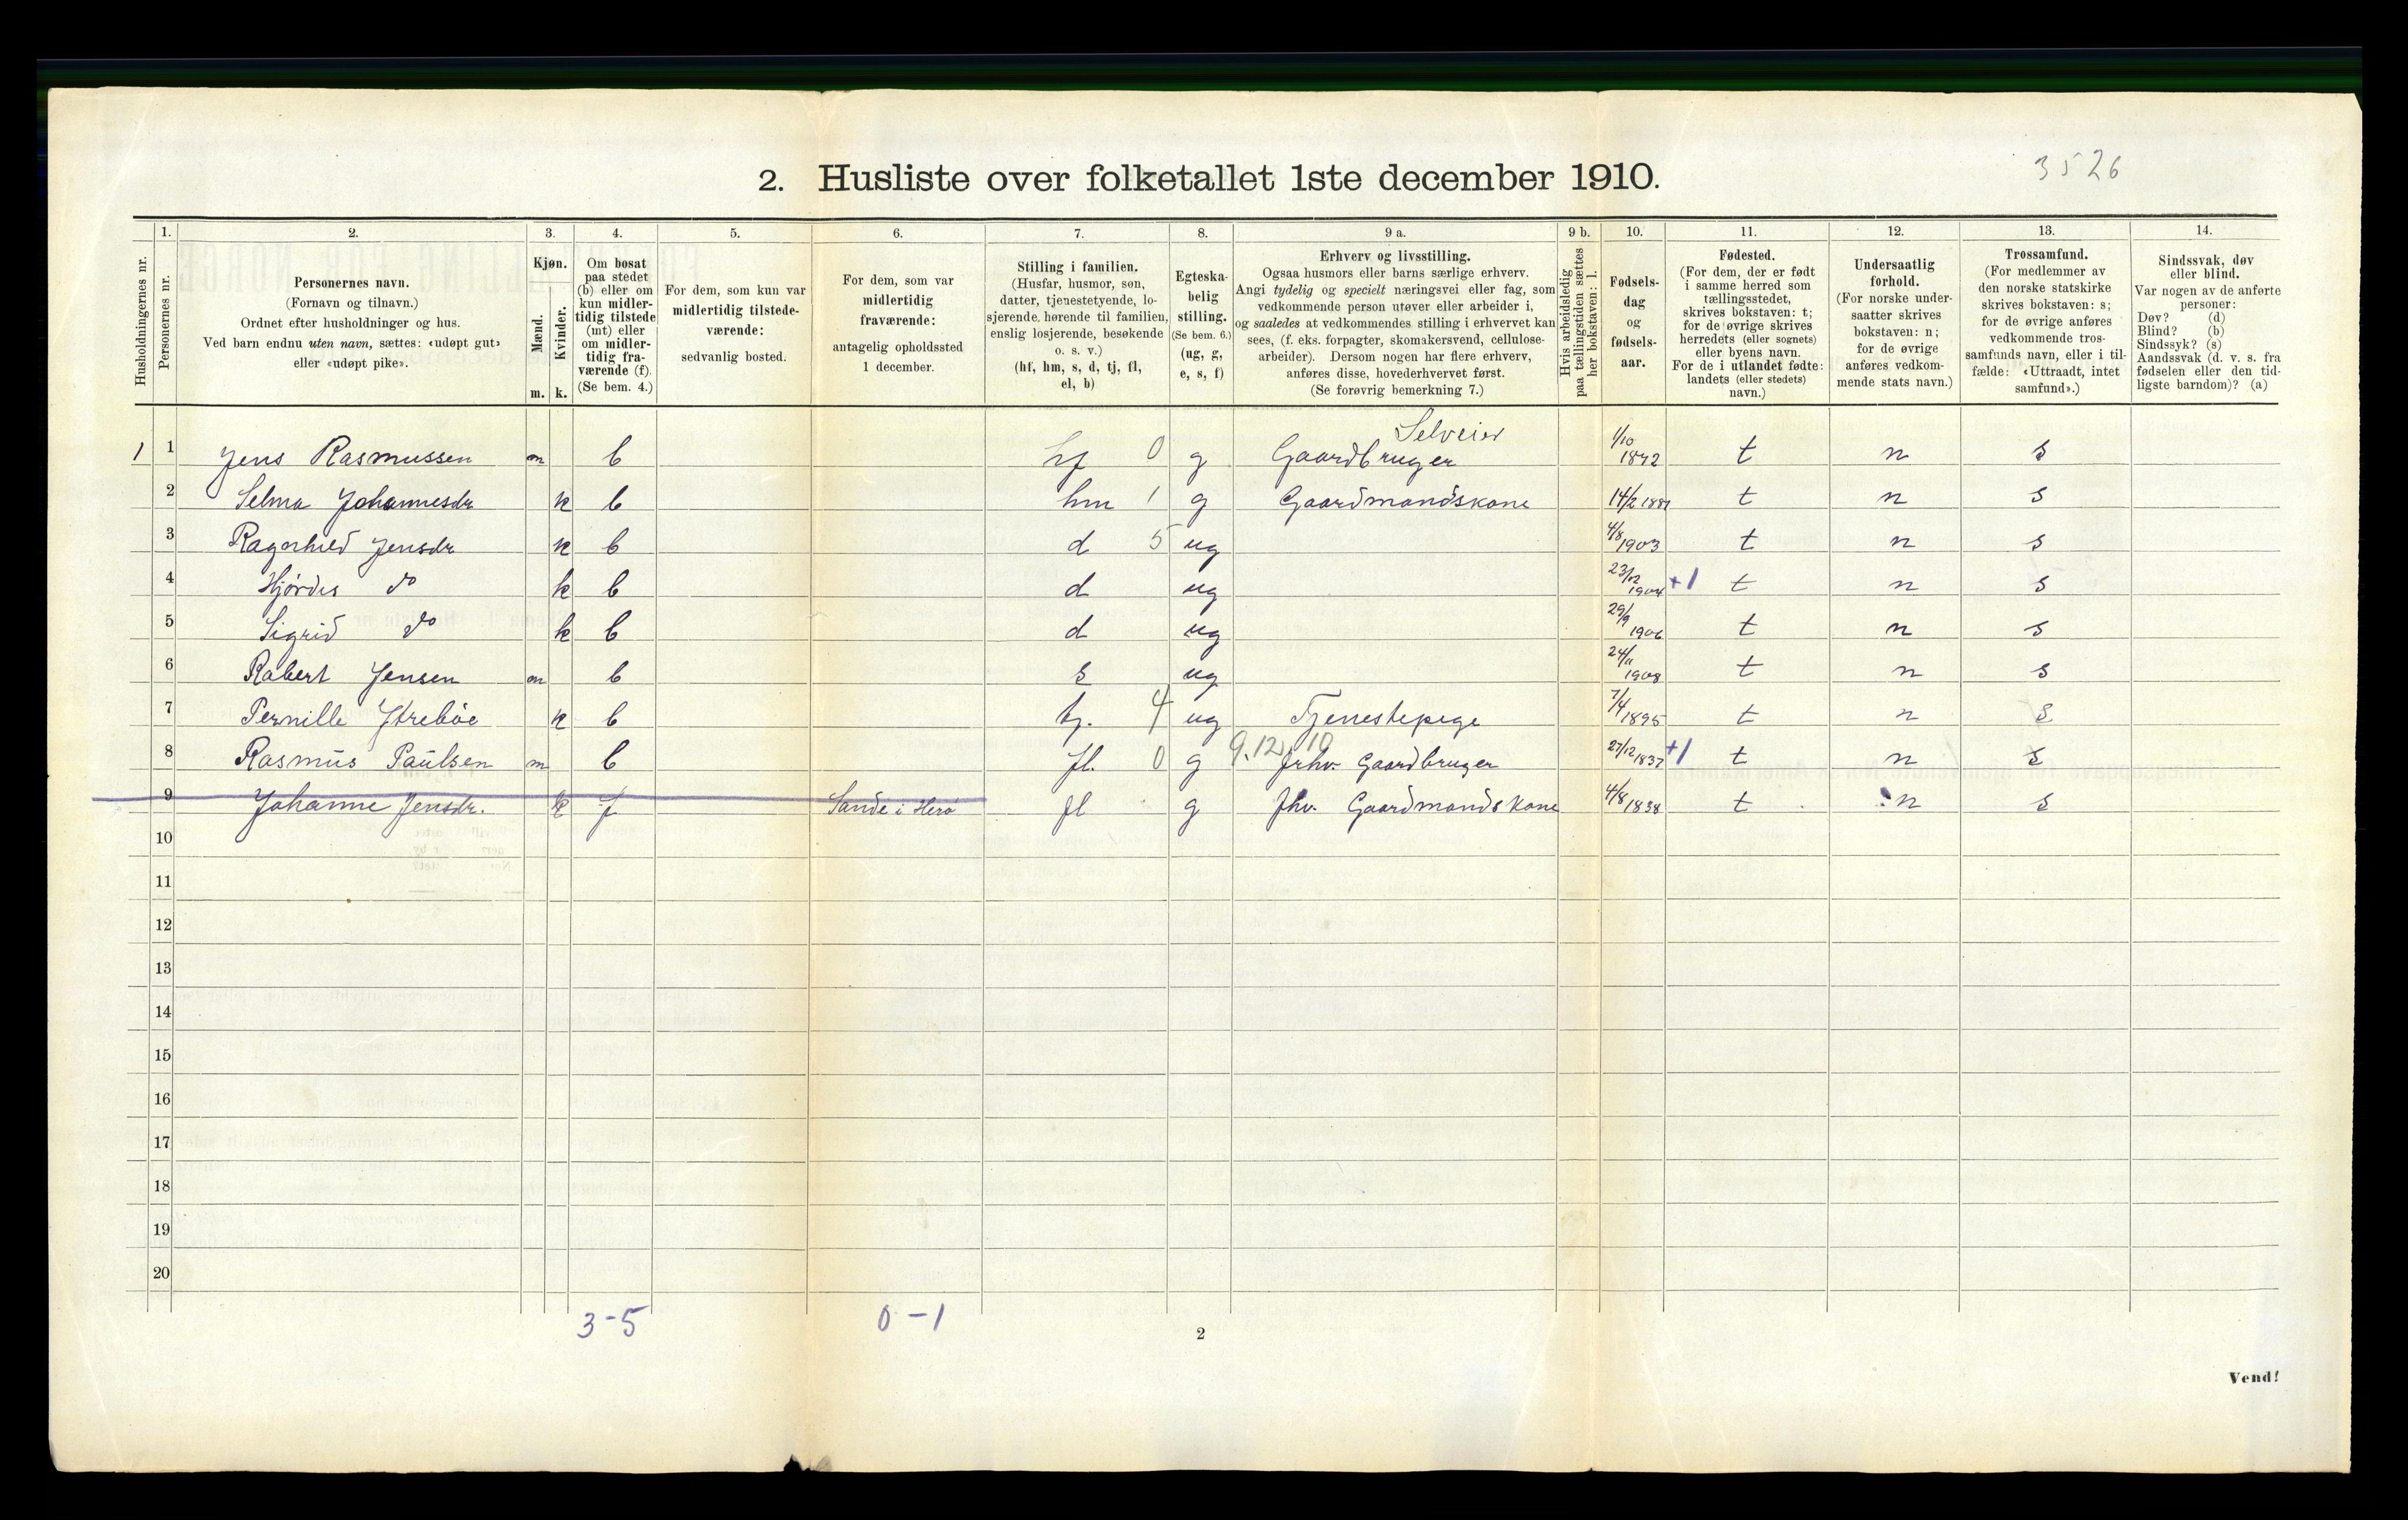 3526
2. Husliste over folketallet 1ste december 1910.
Husholdningernes nr.
1.
Personernes nr.
2.
Personernes navn.
(Fornavn og tilnavn.)
Ordnet efter husholdninger og hus.
Ved barn endnu uten navn, sættes: «udøpt gut»
eller «udøpt pike».
3.
Kjøn.
Mænd.
Kvinder.
m. k.
4.
Om bosat
paa stedet
(b) eller om
kun midler-
tidig tilstede
(mt) eller
om midler-
tidig fra-
værende (f).
(Se bem. 4.)
5.
For dem, som kun var
midlertidig tilstede-
værende:
sedvanlig bosted.
6.
For dem, som var
midlertidig
fraværende:
antagelig opholdssted
1 december.
7.
Stilling i familien.
(Husfar, husmor, søn,
datter, tjenestetyende, lo-
sjerende, hørende til familien,
enslig losjerende, besøkende
o. s. v.)
(hf, hm, s, d, tj, fl,
el, b)
8.
Egteska-
belig
stilling.
(Se bem. 6.)
(ug, g,
e, s, f)
9 a.
Erhverv og livsstilling.
Ogsaa husmors eller barns særlige erhverv.
Angi tydelig og specielt næringsvei eller fag, som
vedkommende person utøver eller arbeider i,
og saaledes at vedkommendes stilling i erhvervet kan
sees, (f. eks. forpagter, skomakersvend, cellulose-
arbeider). Dersom nogen har flere erhverv,
anføres disse, hovederhvervet først.
(Se forøvrig bemerkning 7.)
9 b.
Hvis arbeidsledig
paa tællingstiden sættes
her bokstaven: l.
10.
Fødsels-
dag
og
fødsels-
aar.
11.
Fødested.
(For dem, der er født
i samme herred som
tællingsstedet,
skrives bokstaven: t;
for de øvrige skrives
herredets (eller sognets)
eller byens navn.
For de i utlandet fødte:
landets (eller stedets)
navn.)
12.
Undersaatlig
forhold.
(For norske under-
saatter skrives
bokstaven: n;
for de øvrige
anføres vedkom-
mende stats navn.)
13.
Trossamfund.
(For medlemmer av
den norske statskirke
skrives bokstaven: s;
for de øvrige anføres
vedkommende tros-
samfunds navn, eller i til-
fælde: «Uttraadt, intet
samfund».)
14.
Sindssvak, døv
eller blind.
Var nogen av de anførte
personer:
Døv? (d)
Blind? (b)
Sindssyk? (s)
Aandssvak (d. v. s. fra
fødselen eller den tid-
ligste barndom)? (a)
Selveier
1 1 Jens Rasmussen m b hf 0 g Gaardbruger 1/10 1872 t n s
2 Selma Johannesdr k b hm 1 g Gaardmandskone 14/2 1881 t n s
3 Ragnhild Jensdr k b d 5 ug 4/8 1903 t n s
4 Hjørdis do k b d ug 23/12 1904 +1 t n s
5 Sigrid do k b d ug 29/9 1906 t n s
6 Robert Jensen m b s ug 24/11 1908 t n s
7 Pernille Ytrebøe k b tj. 4 ug Tjenestepige 7/4 1895 t n s
9.12.10
8 Rasmus Paulsen m b fl. 0 g frhv. Gaardbruger 27/12 1837 +1 t n s
9 Johanne Jensdr. k f Sande i Herø fl g fhv. Gaardmandskone 4/8 1838 t n s
10
11
12
13
14
15
16
17
18
19
20
3-5 0-1
2
Vend!